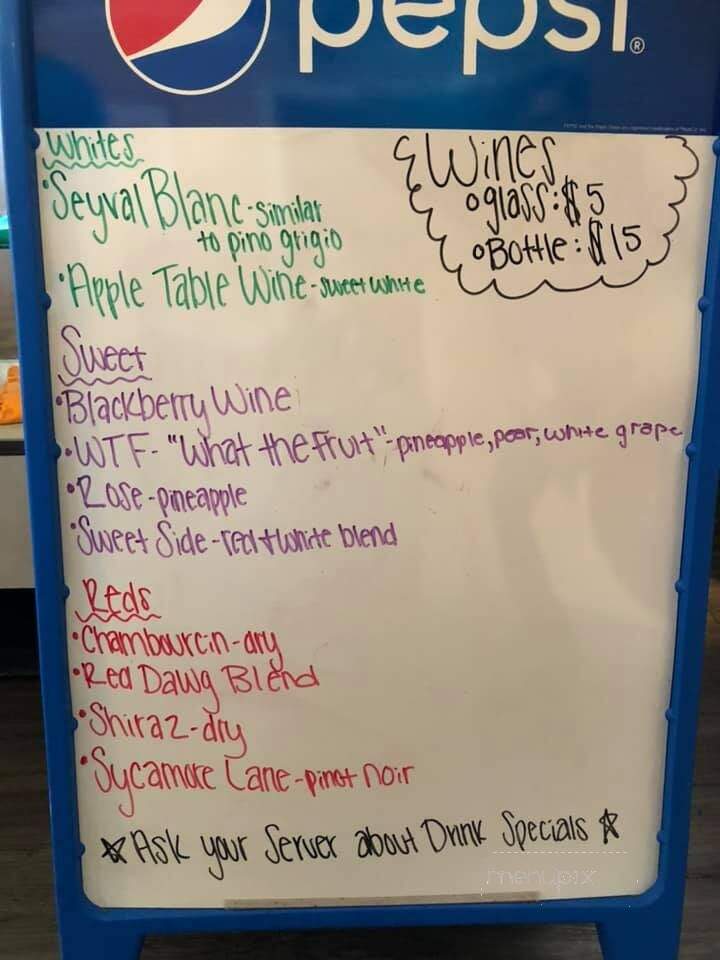 pepsi®
Whites
•Seyval Blanc-similar
to pino grigio
•Apple Table Wine-sweet white
Wines
o glass:$5
o Bottle:$15
Sweet
•Blackberry Wine
•WTF-"What the Fruit"-pineapple, pear, white grape
•Rose-pineapple
•Sweet Side-red+white blend
Reds
•Chambourcin-dry
•Red Dawg Blend
•Shiraz-dry
•Sycamore Lane-pinot noir
☆Ask your Server about Drink Specials☆
menupix